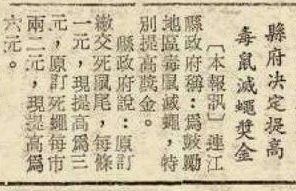 縣府决定提高
毒鼠滅蠅奬金
〔本報訊〕連江
縣政府稱:爲鼓勵
地區毒鼠滅蠅,特
別提高獎金。
縣政府說:原訂
繳交死鼠尾,每條
一元,現提高爲三
元,原訂死蠅每市
兩二元,現提高爲
六元。